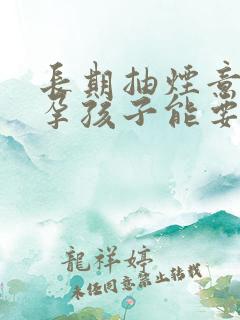 長期抽煙意
孕孩子能要
龍祥婷
未经同意禁止转载